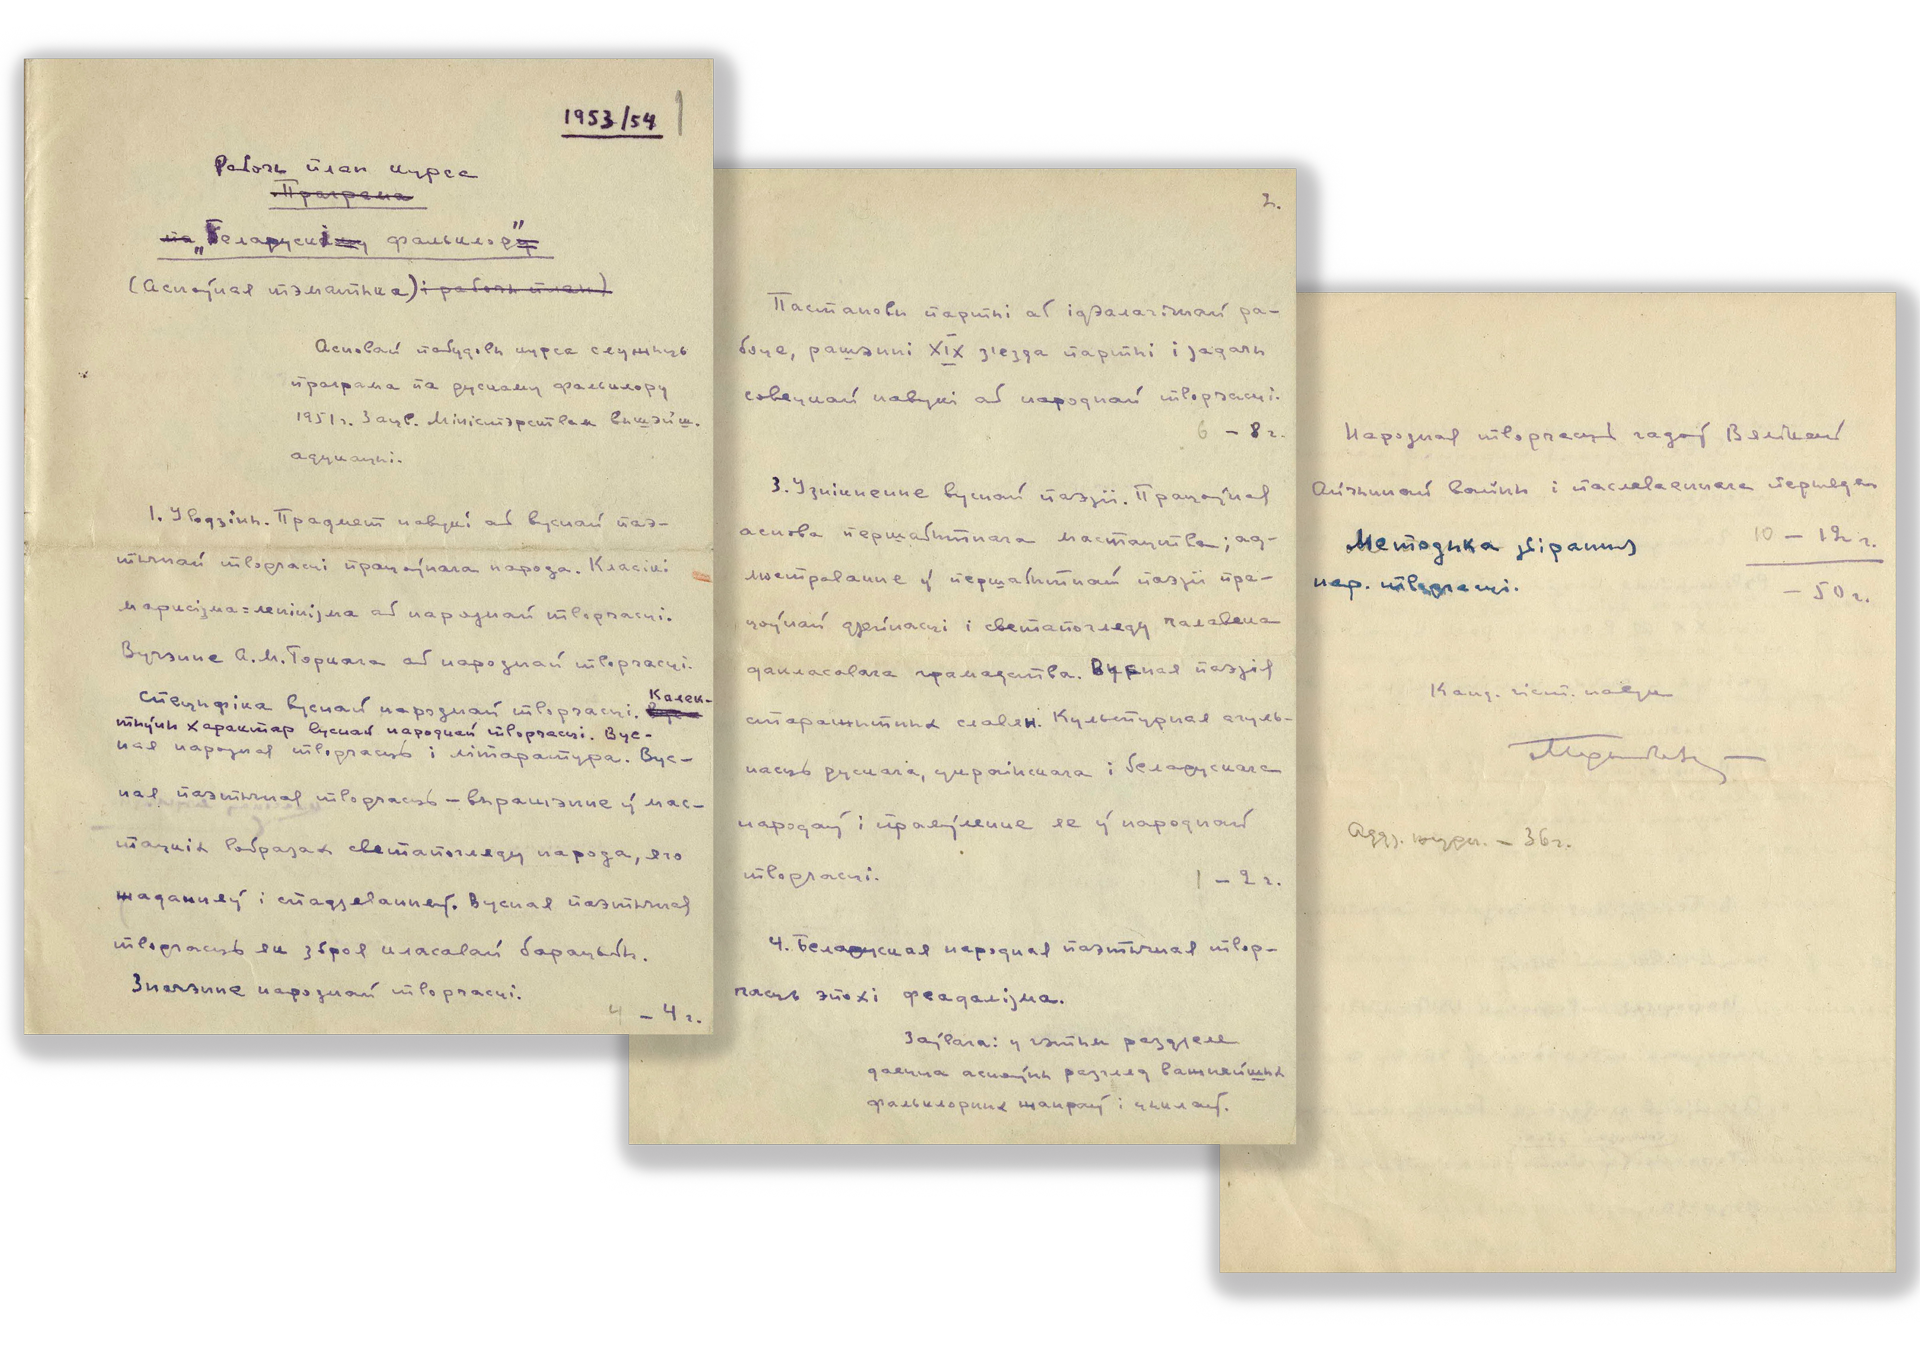 1953/54
Рабочы план курса
Праграма
па „Беларускаму фальклору"
(Асноўная тэматыка) і рабочы план)
Асновай пабудовы курса служыць
праграма па рускаму фальклору
1951 г. Зацв. Міністэрствам вышэйш.
адукацыі.
1. Уводзіны. Прадмет навукі аб вуснай паэ-
тычнай творчасці працоўнага народа. Класікі
марксізма=ленінізма аб народнай творчасці.
Вучэнне А.М. Горкага аб народнай творчасці.
Спецыфіка вуснай народнай творчасці. Калек-
тыўны характар вуснай народнай творчасці. Вус-
ная народная творчасць і літаратура. Вус-
ная паэтычная творчасць – выражэнне ў мас-
тацкіх вобразах светапогляду народа, яго
жаданняў і спадзяванняў. Вусная паэтычная
творчасць як зброя класавай барацьбы.
Значэнне народнай творчасці.
4 – 4 г.
2.
Пастановы партыі аб ідэалагічнай ра-
боце, рашэнні XIX з'езда партыі і задачы
савецкай навукі аб народнай творчасці.
6 – 8 г.
3. Узнікненне вуснай паэзіі. Працоўная
аснова першабытнага мастацтва; ад-
люстраванне ў першабытнай паэзіі пра-
цоўнай дзейнасці і светапогляду чалавека
дакласавага грамадства. Вусная паэзія
старажытных славян. Культурная агуль-
насць рускага, украінскага і беларускага
народаў і праяўленне яе ў народнай
творчасці.
1 – 2 г.
4. Беларуская народная паэтычная твор-
часць эпохі феадалізма.
Заўвага: у гэтым раздзеле
даецца асноўны разгляд важнейшых
фальклорных жанраў і цыклаў.
Народная творчасць гадоў Вялікай
Айчыннай вайны і пасляваеннага перыяду
10 – 12 г.
Методыка збірання
нар. творчасці.
– 50 г.
Канд. гіст. навук
Адз. журн. – 36 г.